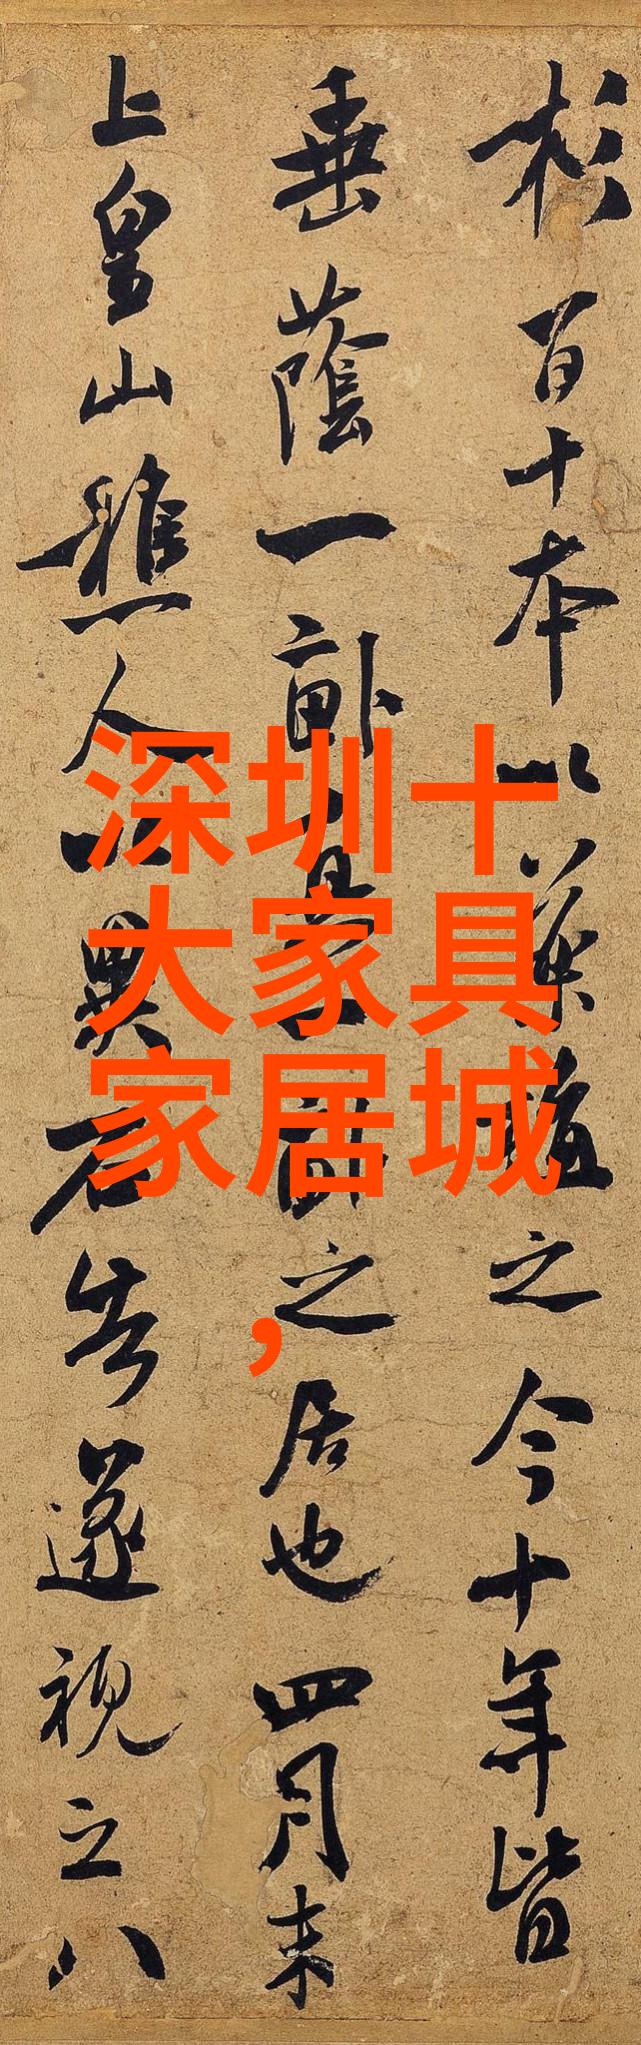 杉百十本以之今十年皆
垂蔭一畝之居也四月末
上皇山樵人以異石告遂視之八
深圳十
大家具
家居城
,